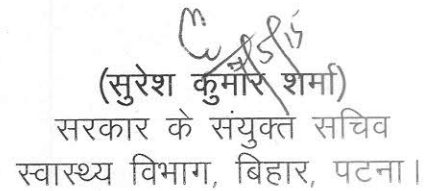 (सुरेश कुमार शर्मा)
सरकार के संयुक्त सचिव
स्वास्थ्य विभाग, बिहार, पटना।